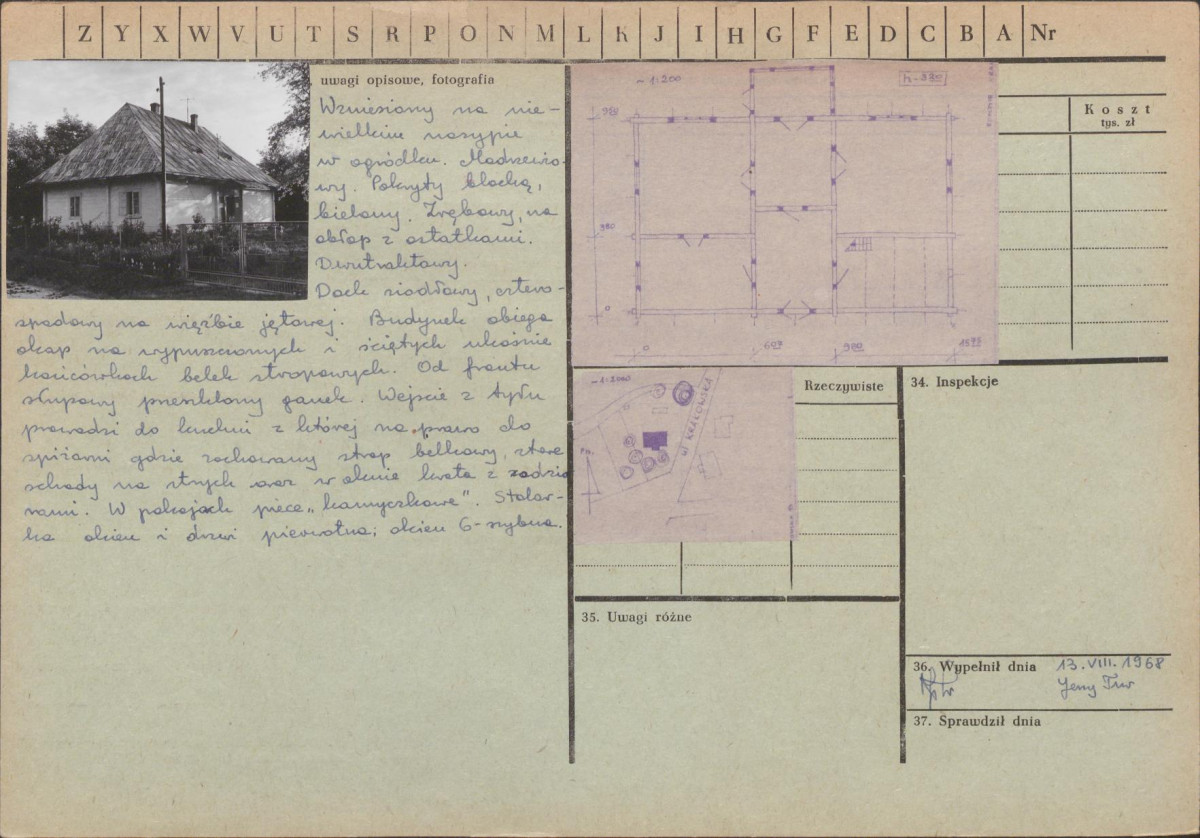 Z Y X W V U T S R P O N M L K J I H G F E D C B A Nr
uwagi opisowe, fotografia
Wzniesiony na nie-
wielkim nasypie
w ogródku. Modrzewio-
wy. Pokryty blachą,
bielony. Zrębowy, na
obłap z ostatkami.
Dwutraktowy.
Dach siodłowy, cztero-
spadowy na więźbie jętowej. Budynek obiega
okap na wypuszczonych i ściętych ukośnie
końcówkach belek stropowych. Od frontu
słupowy przeszklony ganek. Wejście z tyłu
prowadzi do kuchni z której na prawo do
spiżarni gdzie zachowany strop belkowy, stare
schody na strych oraz w oknie krata z zadzio-
rami. W pokojach piece „kamyczkowe”. Stolar-
ka okien i drzwi pierwotna; okien 6-szybna.
~ 1:200
h-330
980
380
0
0
607
980
Koszt
tys. zł
~1:2000
W. KRAKOWSKA
PN.
Rzeczywiste
34. Inspekcje
35. Uwagi różne
36. Wypełnił dnia 13.VIII.1968
Jerzy Tur
37. Sprawdził dnia